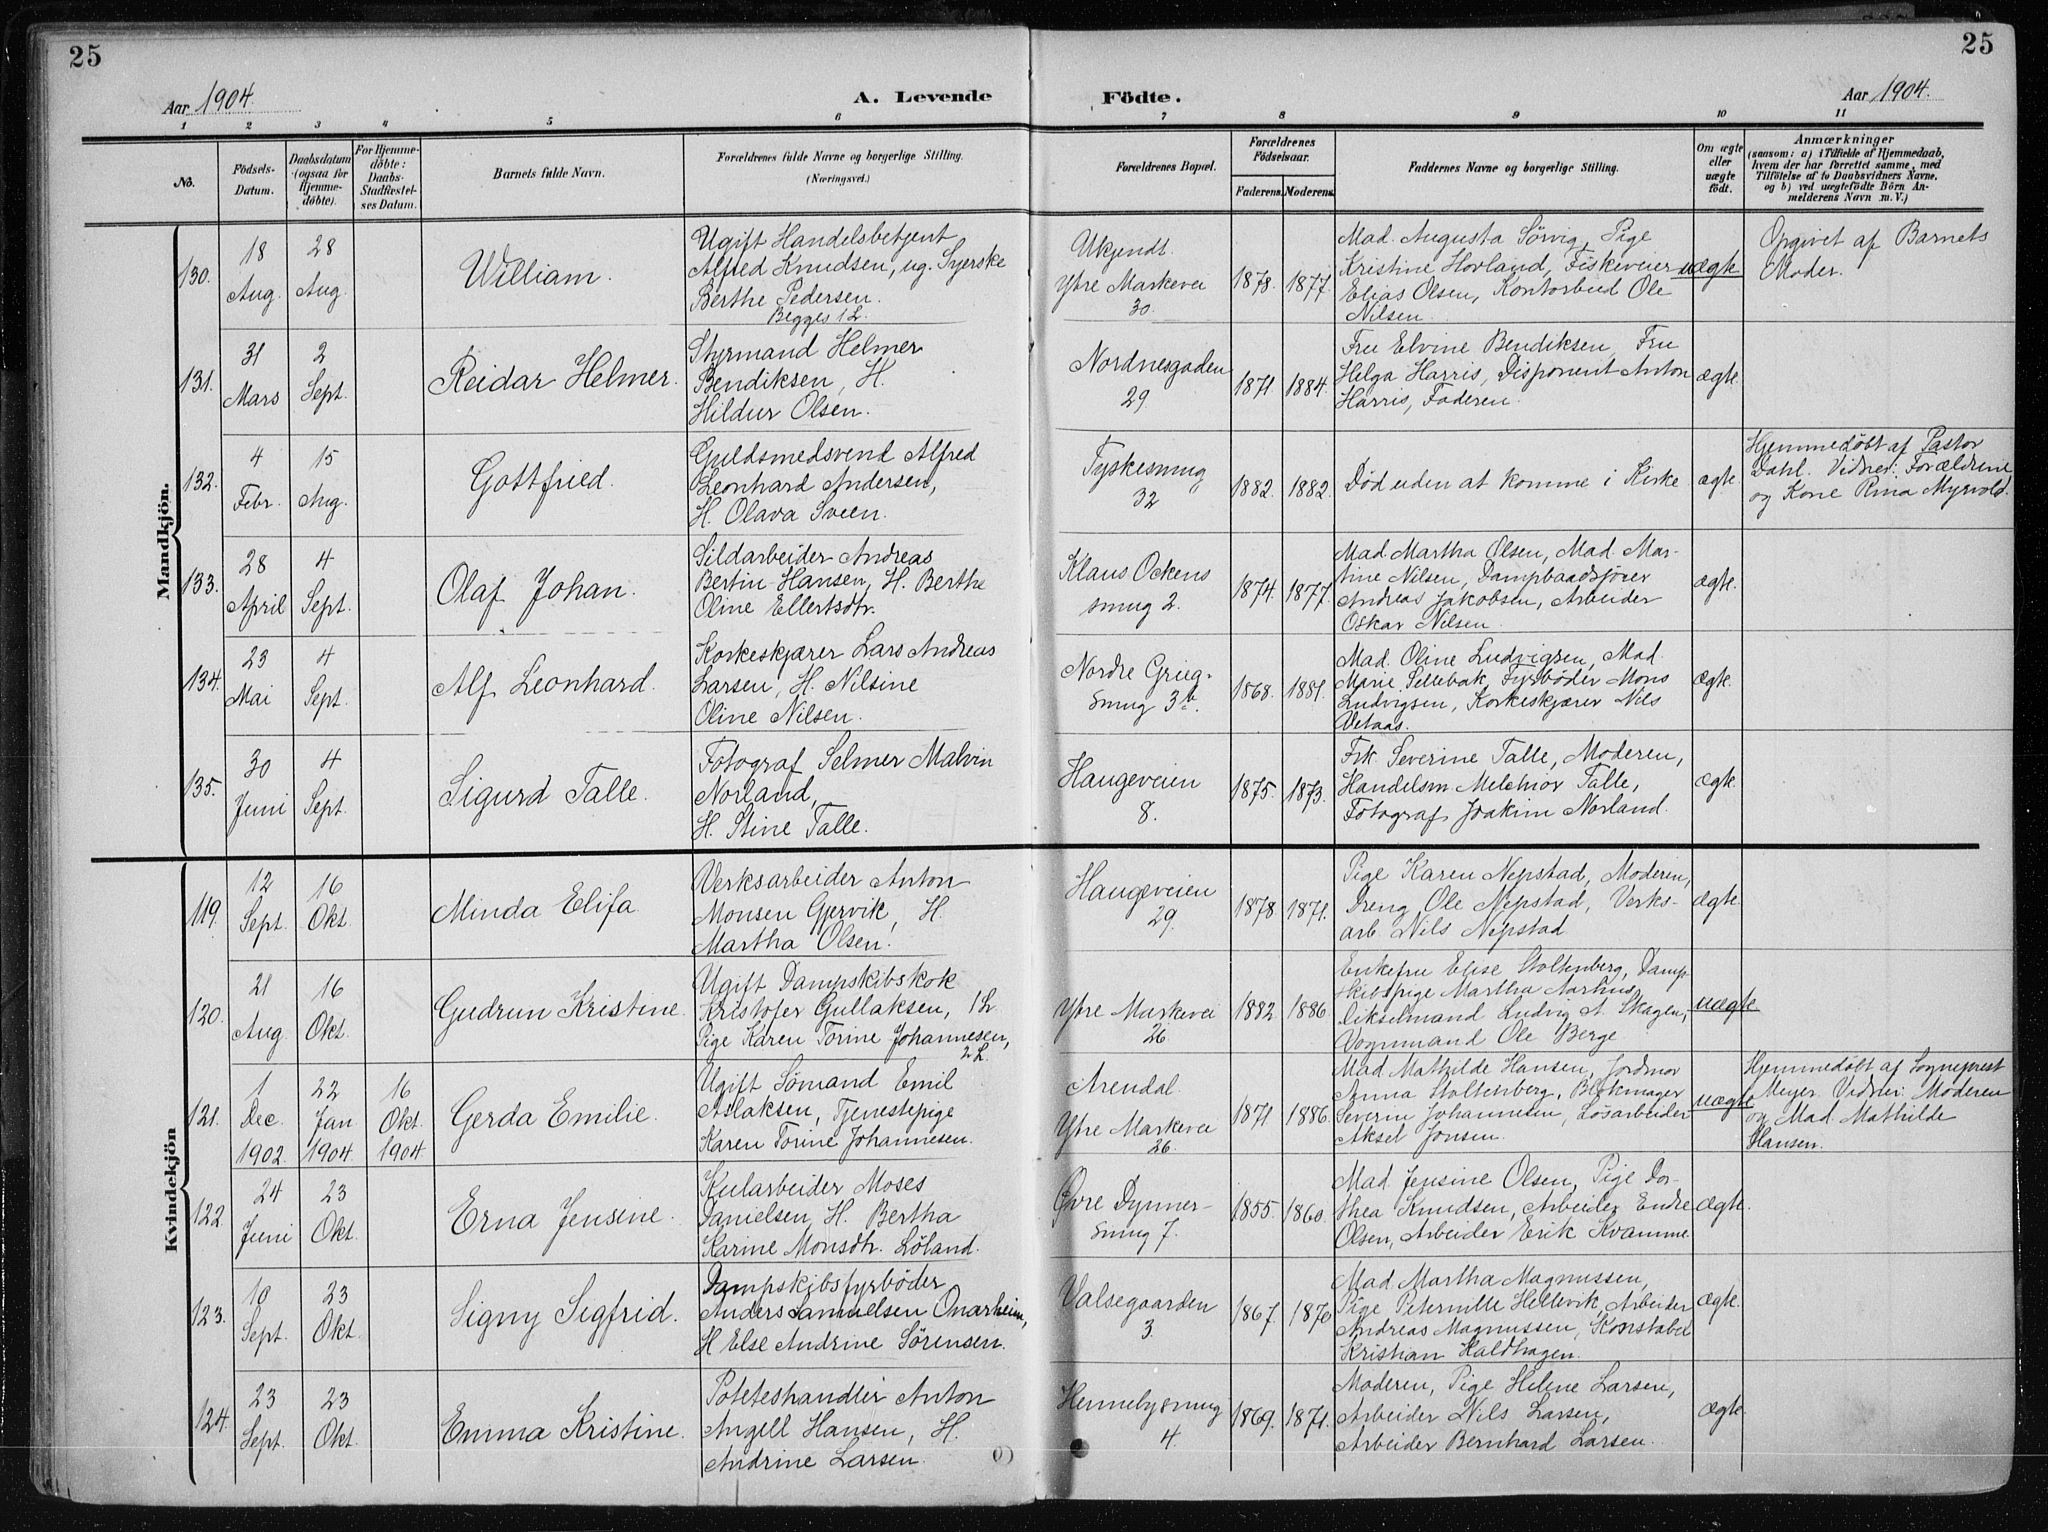 25
25
Aar 1904.
A. Levende
Födte.
Aar 1904.
1 2 3 4 5 6 7 8 9 10 11
No.
Födsels-
Datum.
Daabsdatum
(ogsaa for
Hjemme-
döbte).
For Hjemme-
döbte:
Daabs-
Stadfæstel-
ses Datum.
Barnets fulde Navn.
Forældrenes fulde Navne og borgerlige Stilling.
(Næringsvei.)
Forældrenes Bopæl.
Forældrenes
Födselsaar.
Faderens. Moderens.
Faddernes Navne og borgerlige Stilling.
Om ægte
eller
uægte
födt.
Anmærkninger
(saasom: a) i Tilfælde af Hjemmedaab,
hvem der har forrettet samme, med
Tilföielse af to Daabsvidners Navne,
og b) ved uægtefödte Börn An-
melderens Navn m. V.)
Mandkjön.
130.
18
Aug.
28
Aug.
William.
Ugift Handelsbetjent
Alfred Knudsen, ug. Syerske
Berthe Pedersen.
Begges 1 L.
Ukjendt.
Ytre Markevei
30.
1878. 1877.
Mad. Augusta Sørvig, Pige
Kristine Hovland, Fiskeveier
Elias Olsen, Kontorbud Ole
Nilsen.
uægte
Opgivet af Barnets
Moder.
131.
31
Mars
2
Sept.
Reidar Helmer.
Styrmand Helmer
Bendiksen, H.
Hildur Olsen.
Nordnesgaden
29.
1871 1884.
Fru Elvine Bendiksen, Fru
Helga Harris, Disponent Anton
Harris, Faderen.
ægte.
132.
4
Febr.
15
Aug.
Gottfried.
Guldsmedsvend Alfred
Leonhard Andersen,
H. Olava Sveen.
Tyskesmug
32
1882. 1882.
Død uden at komme i Kirke
ægte.
Hjemmedøbt af Pastor
Dahl. Vidner: Forældrene
og Kone Rina Myrvold.
133.
28
April
4
Sept.
Olaf Johan.
Sildarbeider Andreas
Bertin Hansen, H. Berthe
Oline Ellertsdtr.
Klaus Ockens
smug 2.
1874. 1877.
Mad. Martha Olsen, Mad. Mar-
tine Nilsen, Dampbaadsfører
Andreas Jakobsen, Arbeider
Oskar Nilsen.
ægte.
134.
23
Mai
4
Sept.
Alf Leonhard.
Korkeskjærer Lars Andreas
Larsen, H. Nilsine
Oline Nilsen.
Nordre Grieg-
smug 3b.
1868. 1881.
Mad. Oline Ludvigsen, Mad.
Marie Sellebak, Fyrbøder Mons
Ludvigsen, Korkeskjærer Nils
Vetaas.
ægte.
135.
30
Juni
4
Sept.
Sigurd Talle.
Fotograf Selmer Malvin
Norland,
H. Stine Talle.
Haugeveien
8.
1875. 1873.
Frk. Severine Talle, Moderen,
Handelsm Melchior Talle,
Fotograf Joakim Norland.
ægte.
Kvindekjön
119.
12
Sept.
16
Okt.
Minda Elifa.
Verksarbeider Anton
Monsen Gjervik, H.
Martha Olsen.
Haugeveien
29.
1878. 1871.
Pige Karen Nepstad, Moderen,
Dreng Ole Nepstad, Verks-
arb. Nils Nepstad
ægte.
120.
21
Aug.
16
Okt.
Gudrun Kristine.
Ugift Dampskibskok
Kristofer Gullaksen, 1 L
Pige Karen Torine Johannesen,
2 L.
Ytre Markevei
26
1882 1886
Enkefru Elise Stoltenberg, Damp-
skibspige Martha Aarhus,
Dikselmand Ludvig A. Skagen,
Vognmand Ole Berge
uægte
121.
1
Dec.
1902.
22
Jan
1904.
16
Okt.
1904
Gerda Emilie.
Ugift Sømand Emil
Aslaksen, Tjenestepige
Karen Torine Johannesen.
Arendal.
Ytre Markevei
26.
1871 1886.
Mad Mathilde Hansen, Jordmor
Anna Stoltenberg, Blokmager
Severin Johannesen, Løsarbeider
Aksel Jonsen.
uægte
Hjemmedøbt af Sogneprest
Meyer. Vidner: Moderen
og Mad. Mathilde
Hansen.
122.
24
Juni
23
Okt.
Erna Jensine.
Kularbeider Moses
Danielsen, H. Bertha
Karine Monsdtr. Løland.
Øvre Dynner-
smug 7.
1855. 1860.
Mad. Jensine Olsen, Pige Dor-
thea Knudsen, Arbeider Endre
Olsen, Arbeider Erik Kvamme
ægte.
123.
10
Sept.
23
Okt.
Signy Sigfrid.
Dampskibsfyrbøder
Anders Samuelsen Onarheim,
H Else Andrine Sørensen.
Valsegaarden
3.
1867. 1870
Mad Martha Magnussen,
Pige Peternille Hellevik, Arbeider
Andreas Magnussen, Konstabel
Kristian Haldhagen.
ægte.
124.
23
Sept.
23
Okt.
Emma Kristine.
Poteteshandler Anton
Angell Hansen, H.
Andrine Larsen.
Hennebysmug
4.
1869. 1871.
Moderen, Pige Helene Larsen,
Arbeider Nils Larsen,
Arbeider Bernhard Larsen.
ægte.